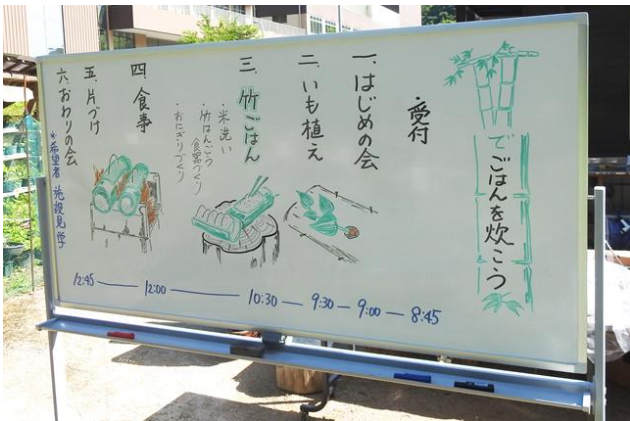 竹でごはんを炊こう
・受付
一.はじめの会
二.いも植え
三.竹ごはん
・米洗い
・竹はんごう
食器づくり
・おにぎりづくり
四.食事
五.片づけ
六.おわりの会
※希望者 施設見学
12:45 — 12:00 — 10:30 — 9:30 — 9:00 — 8:45